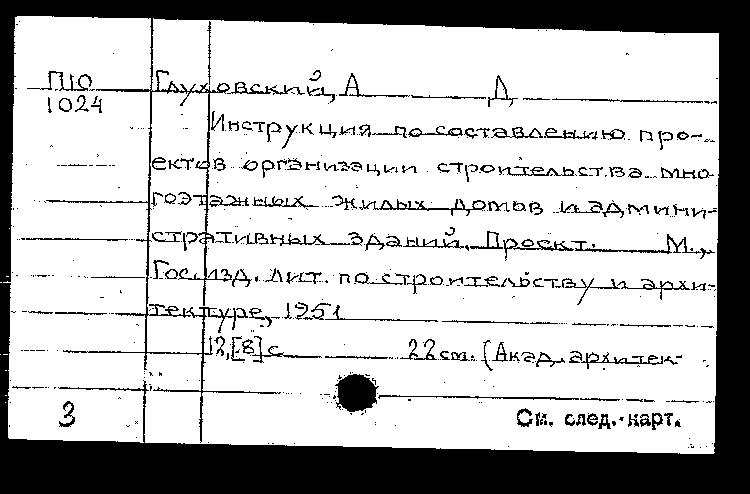 П10 Глуховский, А Д
1024
Инструкция по составлению про-
ектов организации строительства мно
гоэтажных жилых домов и админи-
стративных зданий. Проект. М.,
Гос. изд. лит. по строительству и архи-
тектуре, 1951
12,[8] с 22 см. (Акад. архитек-
3 См. след. карт.